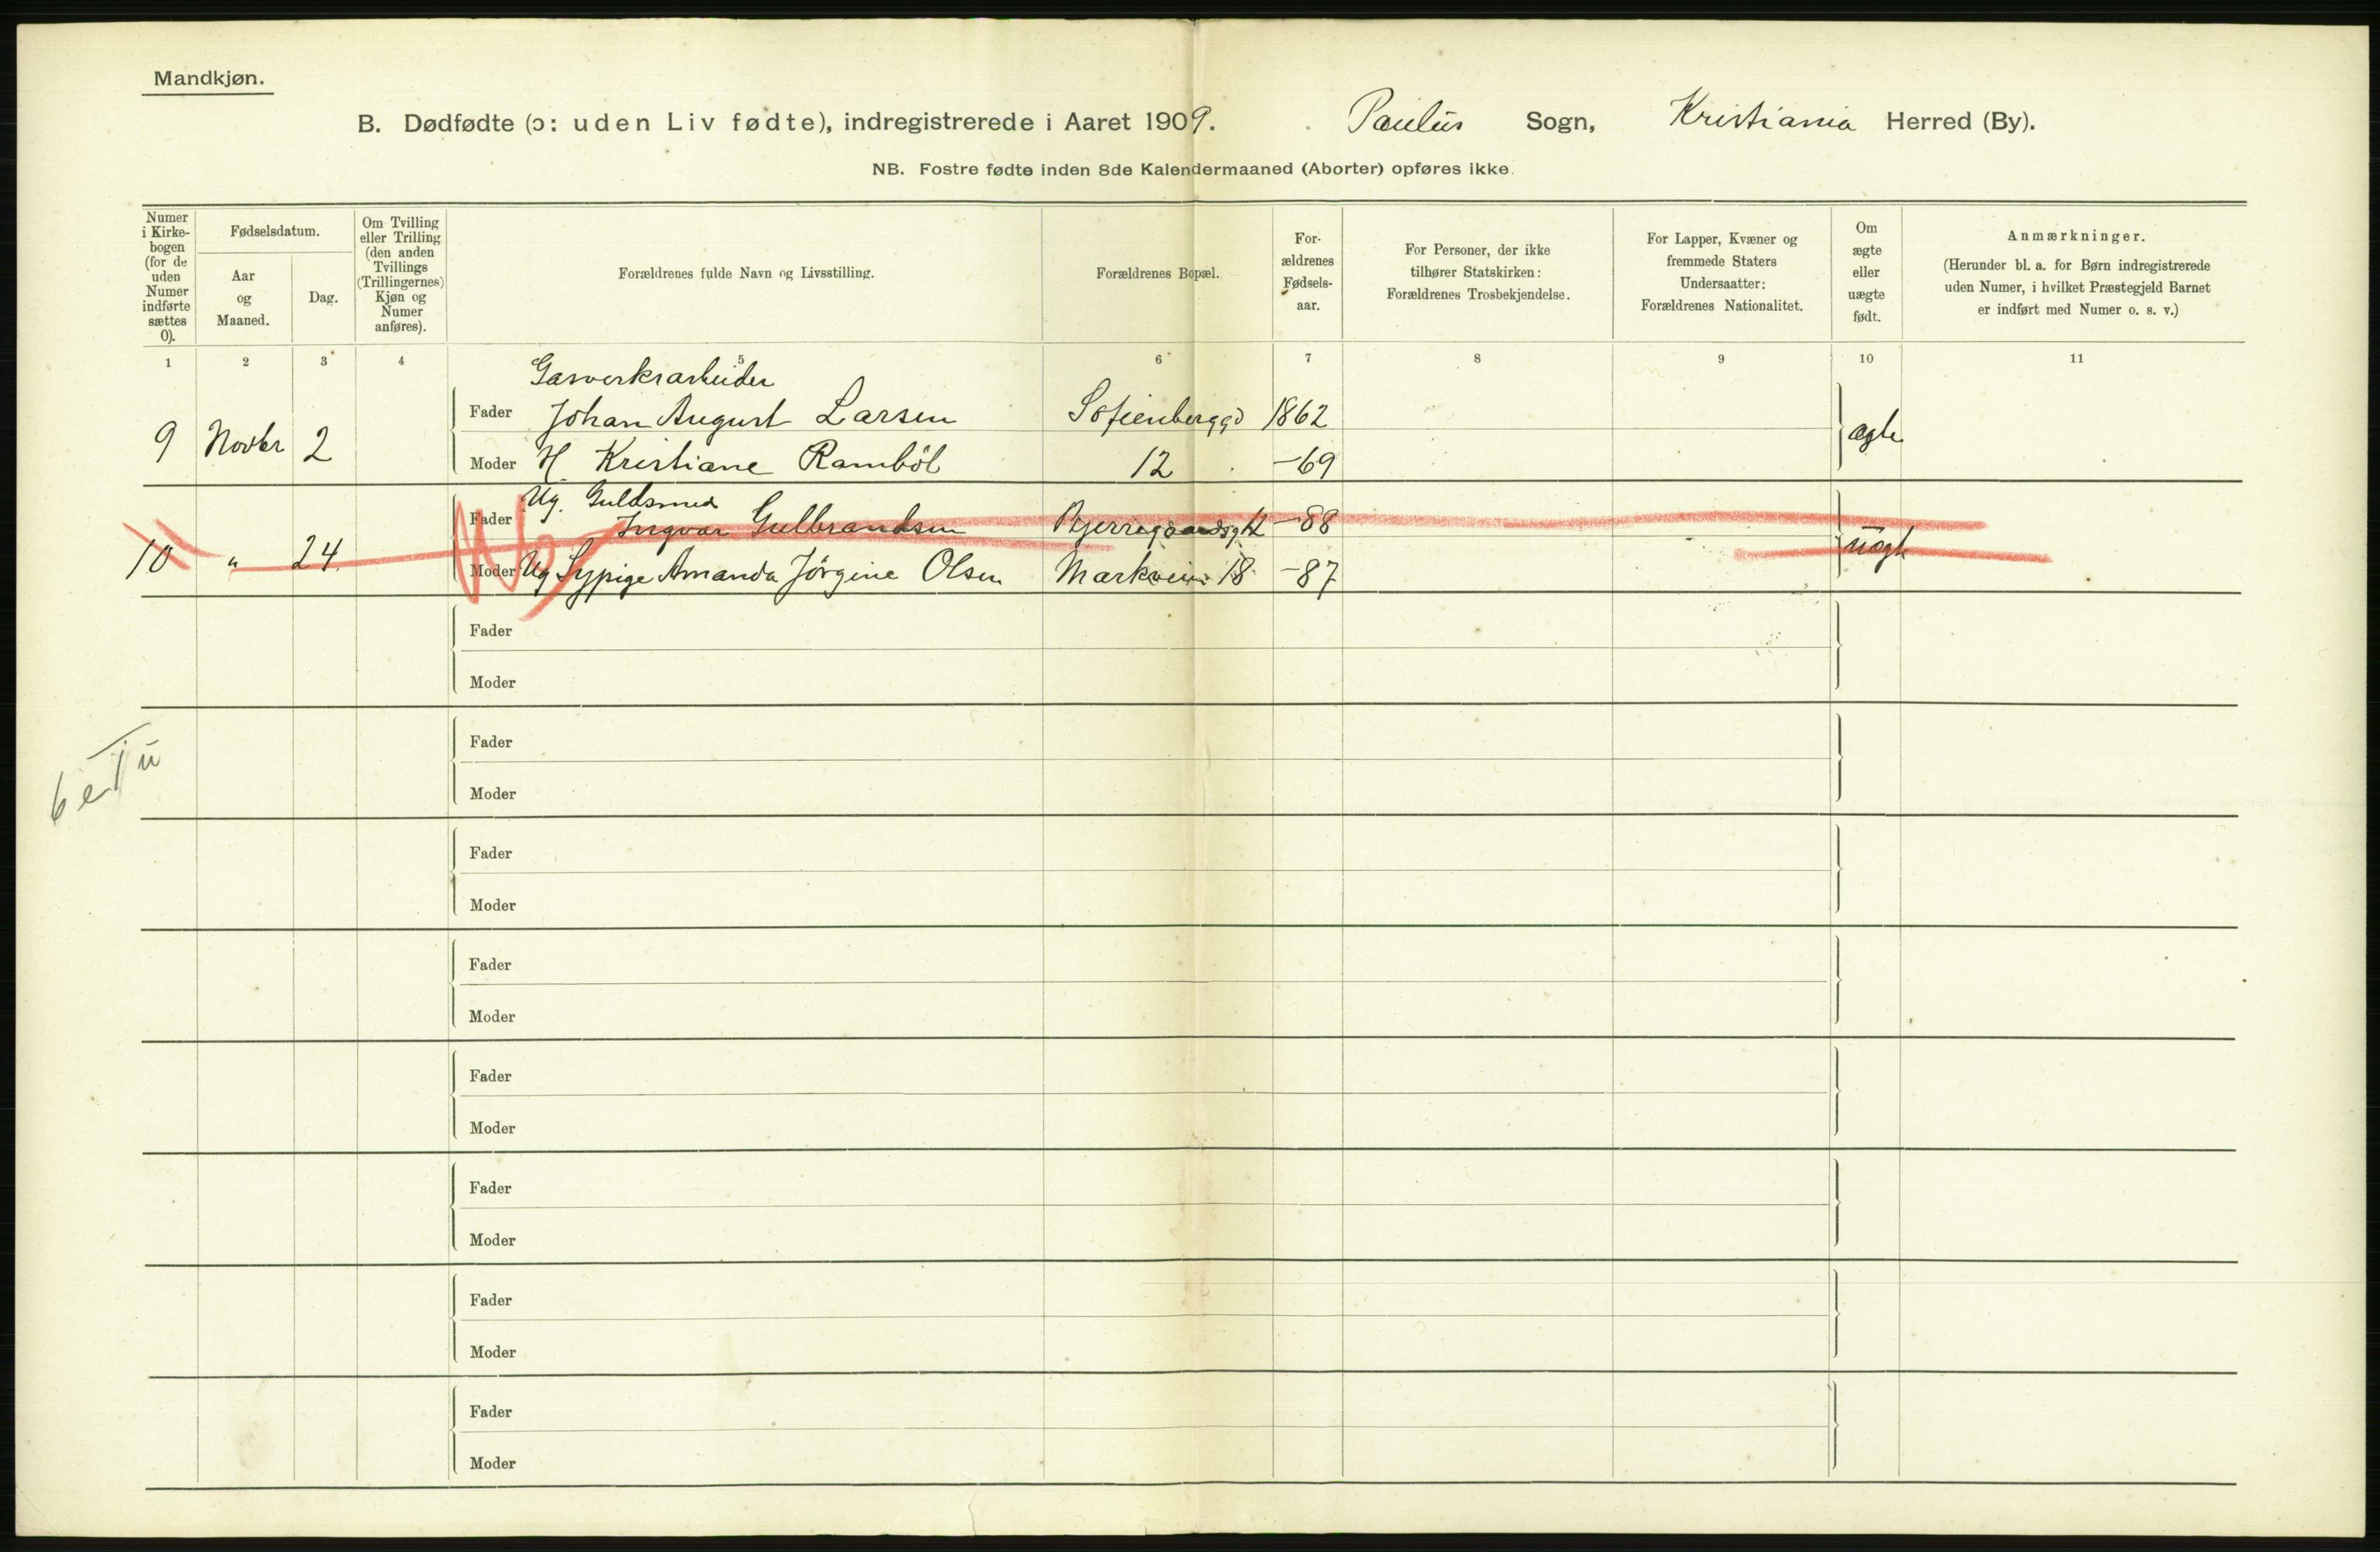 Mandkjøn.
B. Dødfødte (ɔ: uden Liv fødte), indregistrerede i Aaret 1909. Paulus Sogn, Kristiania Herred (By).
NB. Fostre fødte inden 8de Kalendermaaned (Aborter) opføres ikke.
Numer i Kirke-bogen (for de uden Numer indførte sættes 0).
Fødselsdatum.
Aar og Maaned.
Dag.
Om Tvilling eller Trilling (den anden Tvillings (Trillingernes) Kjøn og Numer anføres).
Forældrenes fulde Navn og Livsstilling.
Forældrenes Bopæl.
For-ældrenes Fødsels-aar.
For Personer, der ikke tilhører Statskirken: Forældrenes Trosbekjendelse.
For Lapper, Kvæner og fremmede Staters Undersaatter: Forældrenes Nationalitet.
Om ægte eller uægte født.
Anmærkninger.
(Herunder bl. a. for Børn indregistrerede uden Numer, i hvilket Præstegjeld Barnet er indført med Numer o. s. v.)
1 2 3 4 5 6 7 8 9 10 11
Gasverksarbeider
Fader Johan August Larsen Sofienberggd 1862
9 Novbr 2 ægte
Moder H. Kristiane Rambøl 12 -69
Ug. Guldsmed
Fader Ingvar Gulbrandsen Bjerregaardsgt -88
10 " 24 uægte
Moder Ug Sypige Amanda Jörgine Olsen Markvein 18 -87
Fader
Moder
Fader
Moder
6 e 1 u
Fader
Moder
Fader
Moder
Fader
Moder
Fader
Moder
Fader
Moder
Fader
Moder